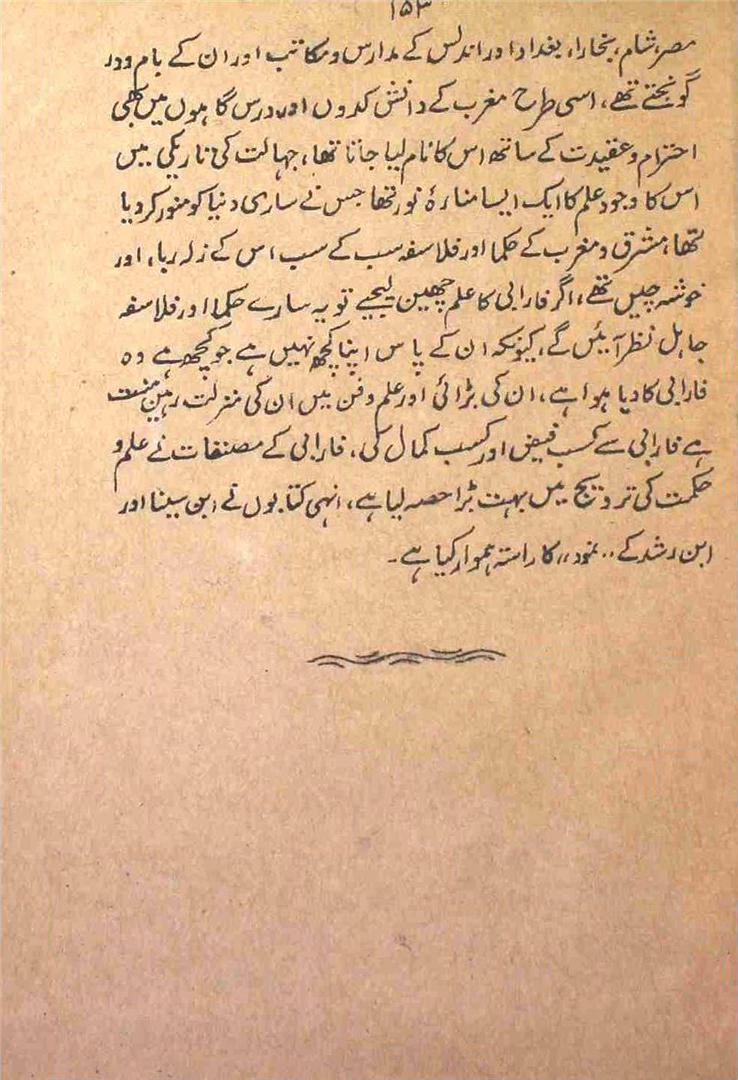 ۱۵۳
مصر، شام، بخارا، بغداد اور اندلس کے مدارس و مکاتب اور ان کے بام و در
گونجتے تھے، اسی طرح مغرب کے دانش کدوں اور درس گاہوں میں بھی
احترام و عقیدت کے ساتھ اس کا نام لیا جاتا تھا، جہالت کی تاریکی میں
اس کا وجود علم کا ایک ایسا منارۂ نور تھا جس نے ساری دنیا کو منور کر دیا
تھا، مشرق و مغرب کے حکما اور فلاسفہ سب کے سب اس کے زلہ ربا، اور
خوشہ چیں تھے، اگر فارابی کا علم چھین لیجیے تو یہ سارے حکما اور فلاسفہ
جاہل نظر آئیں گے، کیونکہ ان کے پاس اپنا کچھ نہیں ہے جو کچھ ہے وہ
فارابی کا دیا ہوا ہے، ان کی بڑائی اور علم و فن میں ان کی منزلت رہین منت
ہے فارابی سے کسب فیض اور کسب کمال کی، فارابی کے مصنفات نے علم و
حکمت کی ترویج میں بہت بڑا حصہ لیا ہے، انہی کتابوں نے ابن سینا اور
ابن رشد کے ،،نمود،، کا راستہ ہموار کیا ہے۔